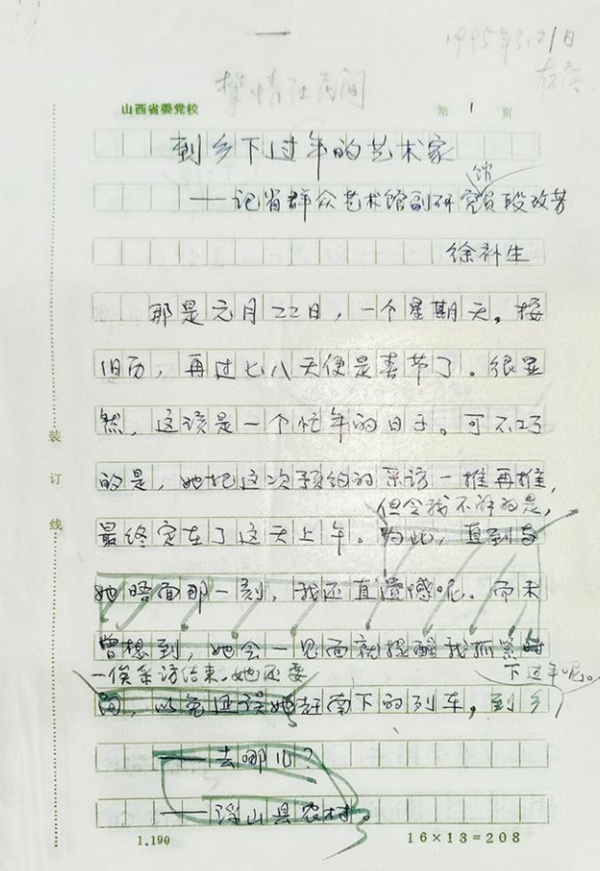 1995.3.21日
攀情在民间
山西省委党校 第 1 页
到乡下过年的艺术家
馆
——记省群众艺术馆副研究员段改芳
徐补生
那是元月22日，一个星期天。按
旧历，再过七八天便是春节了。很显
然，这该是一个忙年的日子。可不巧
的是，她把这次预约的采访一推再推，
但令我不解的是，
最终定在了这天上午。为此，直到与
她晤面那一刻，我还直遗憾呢。而未
曾想到，她会一见面就提醒我抓紧时
一俟采访结束，她还要
下过年呢。
间，以免延误她赶南下的列车，到乡
——去哪儿？
——浮山县农村。
装订线
1.190 16×13=208